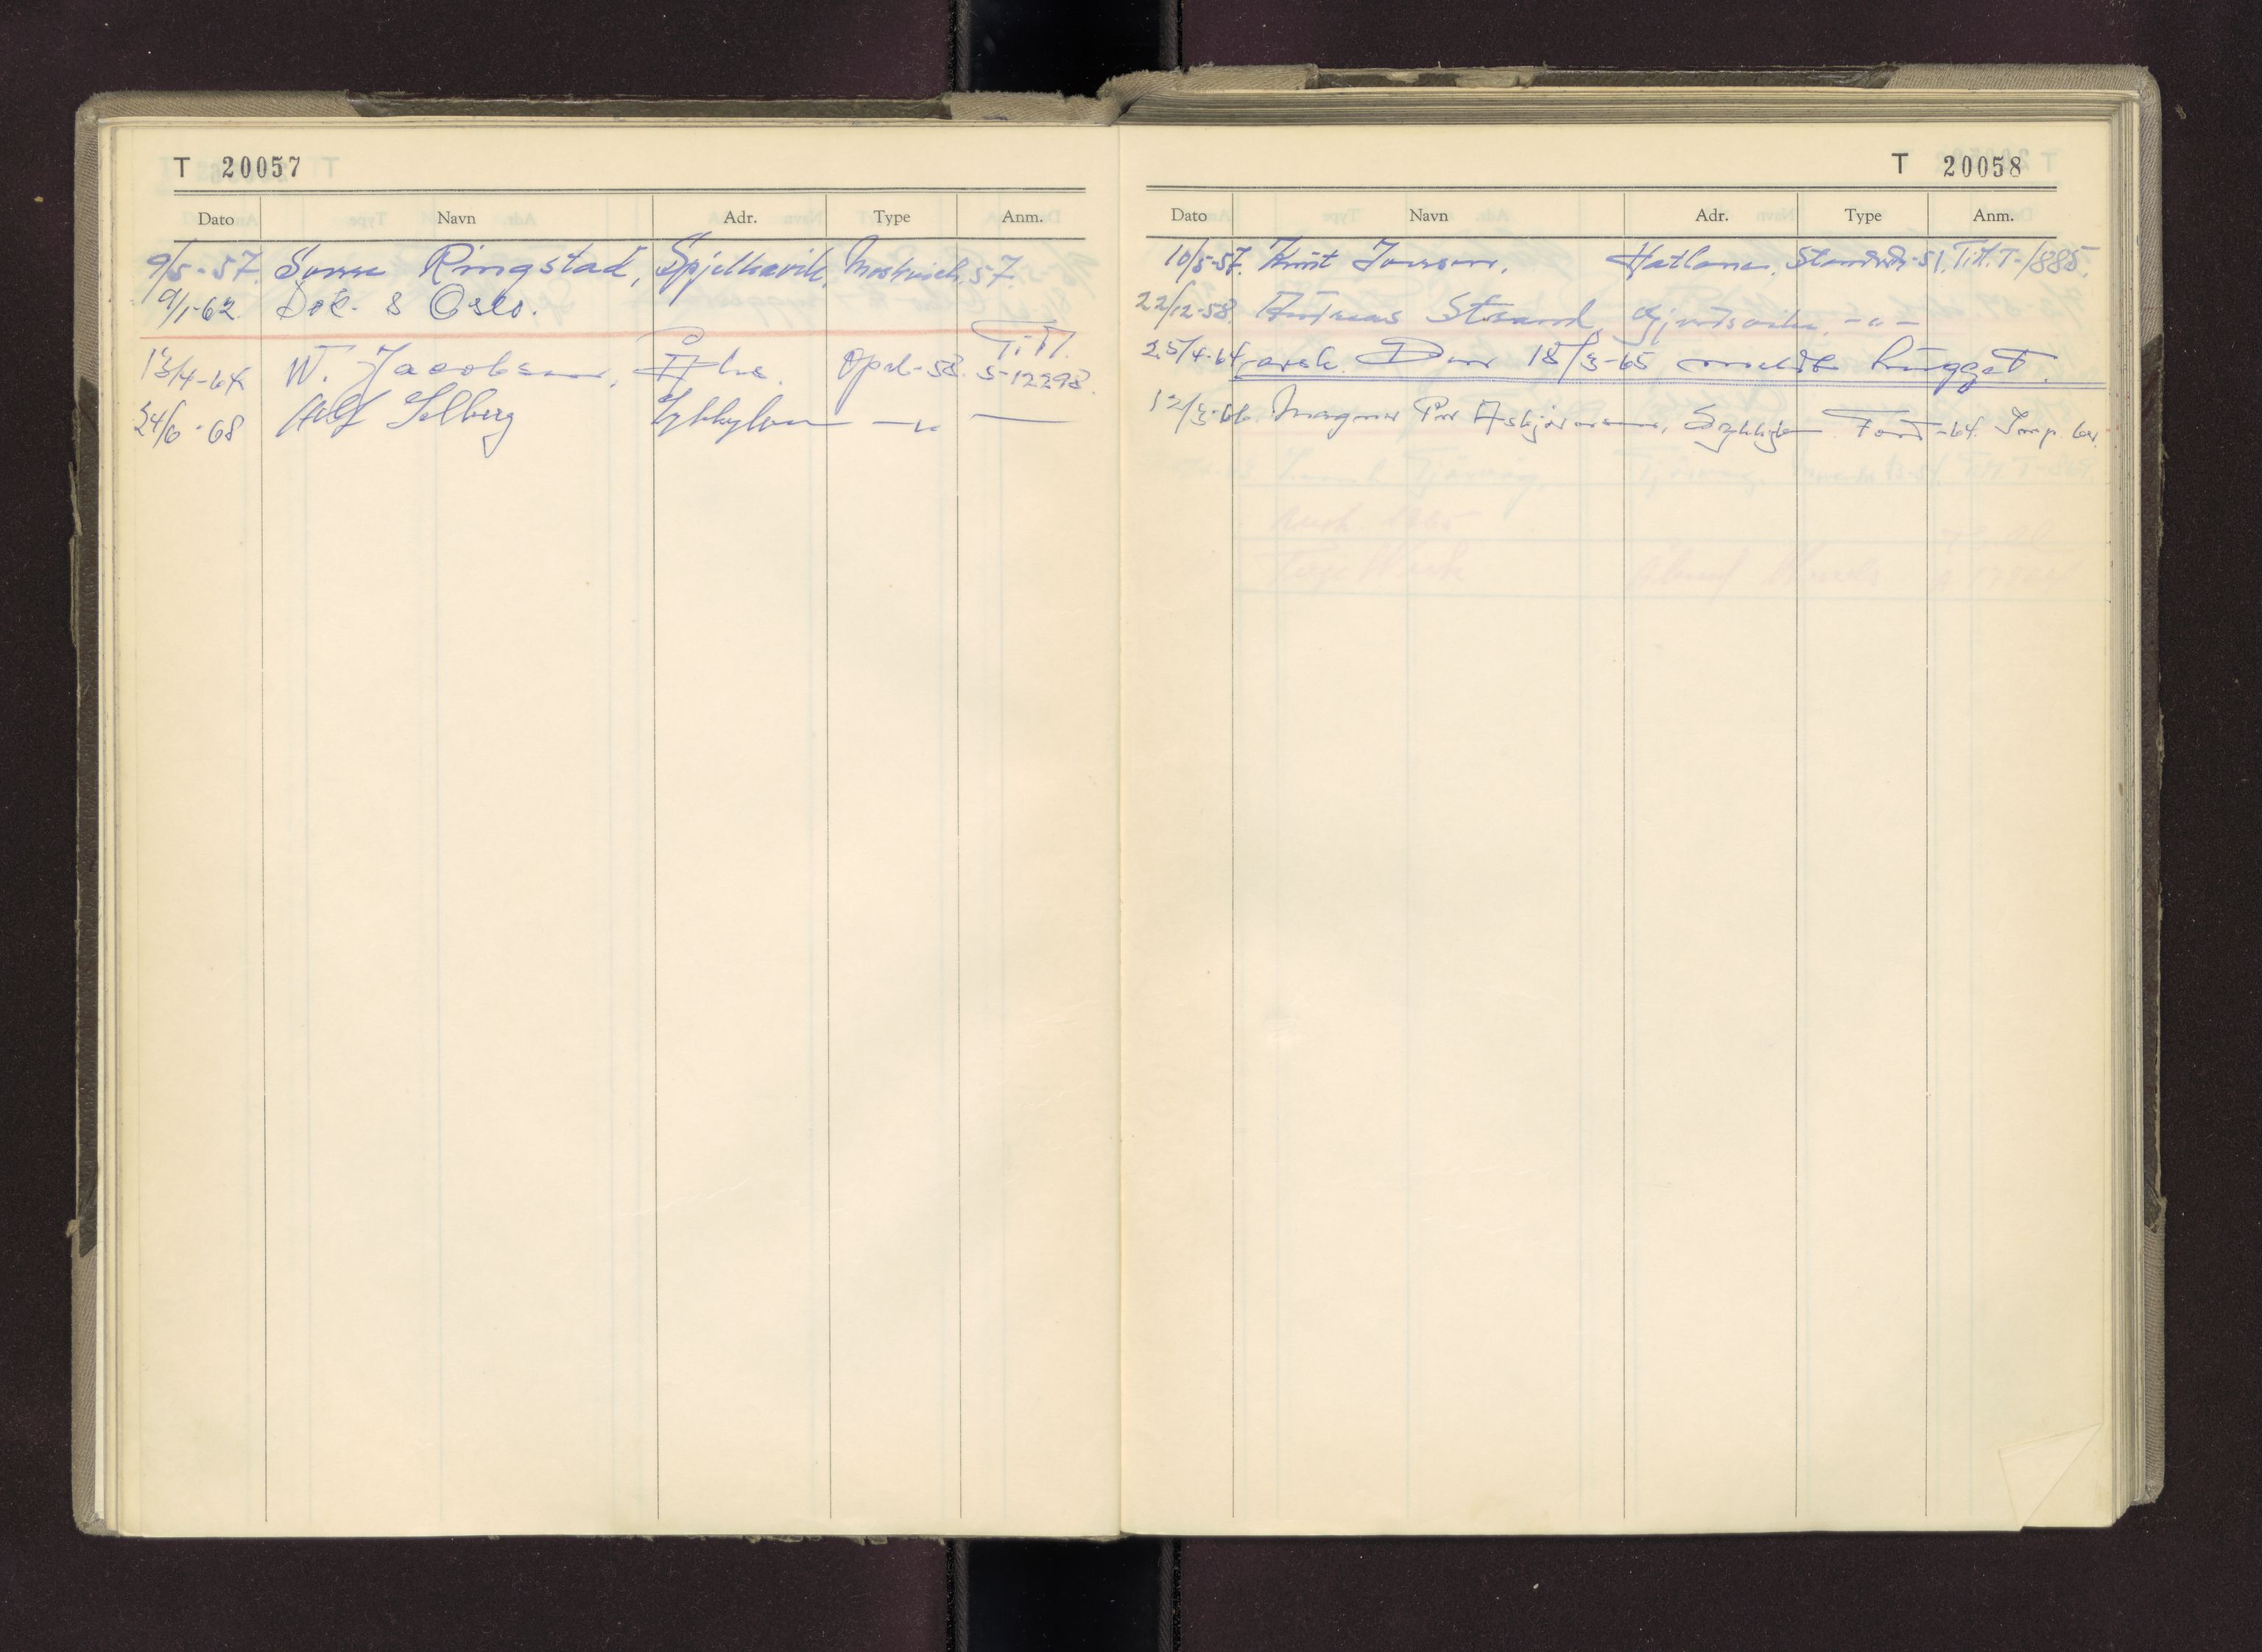 T 20057
Dato Navn Adr. Type Anm.
9/5-57. Ringstad, Spjelkavik, Moskvich, 57.
9/1-62. Dok. s Oslo.
13/4-64 W. Jacobsen, Åhs. Opel-58. Titl. S-12298.
24/6-68 Alf Solberg Sykkylven -"-
T 20058
Dato Navn Adr. Type Anm.
10/5-57. Knut Jonsson, Hatlane, Standard-51. Titl. T-1885.
22/12-58. Andreas Strand, Gjerdsvika, -"-
25/4-64 avsk. Den 18/3-65 meldt hugget.
12/3-66. Magnar Per Asbjørnsen, Sykkylven Ford-64. Imp. kar.